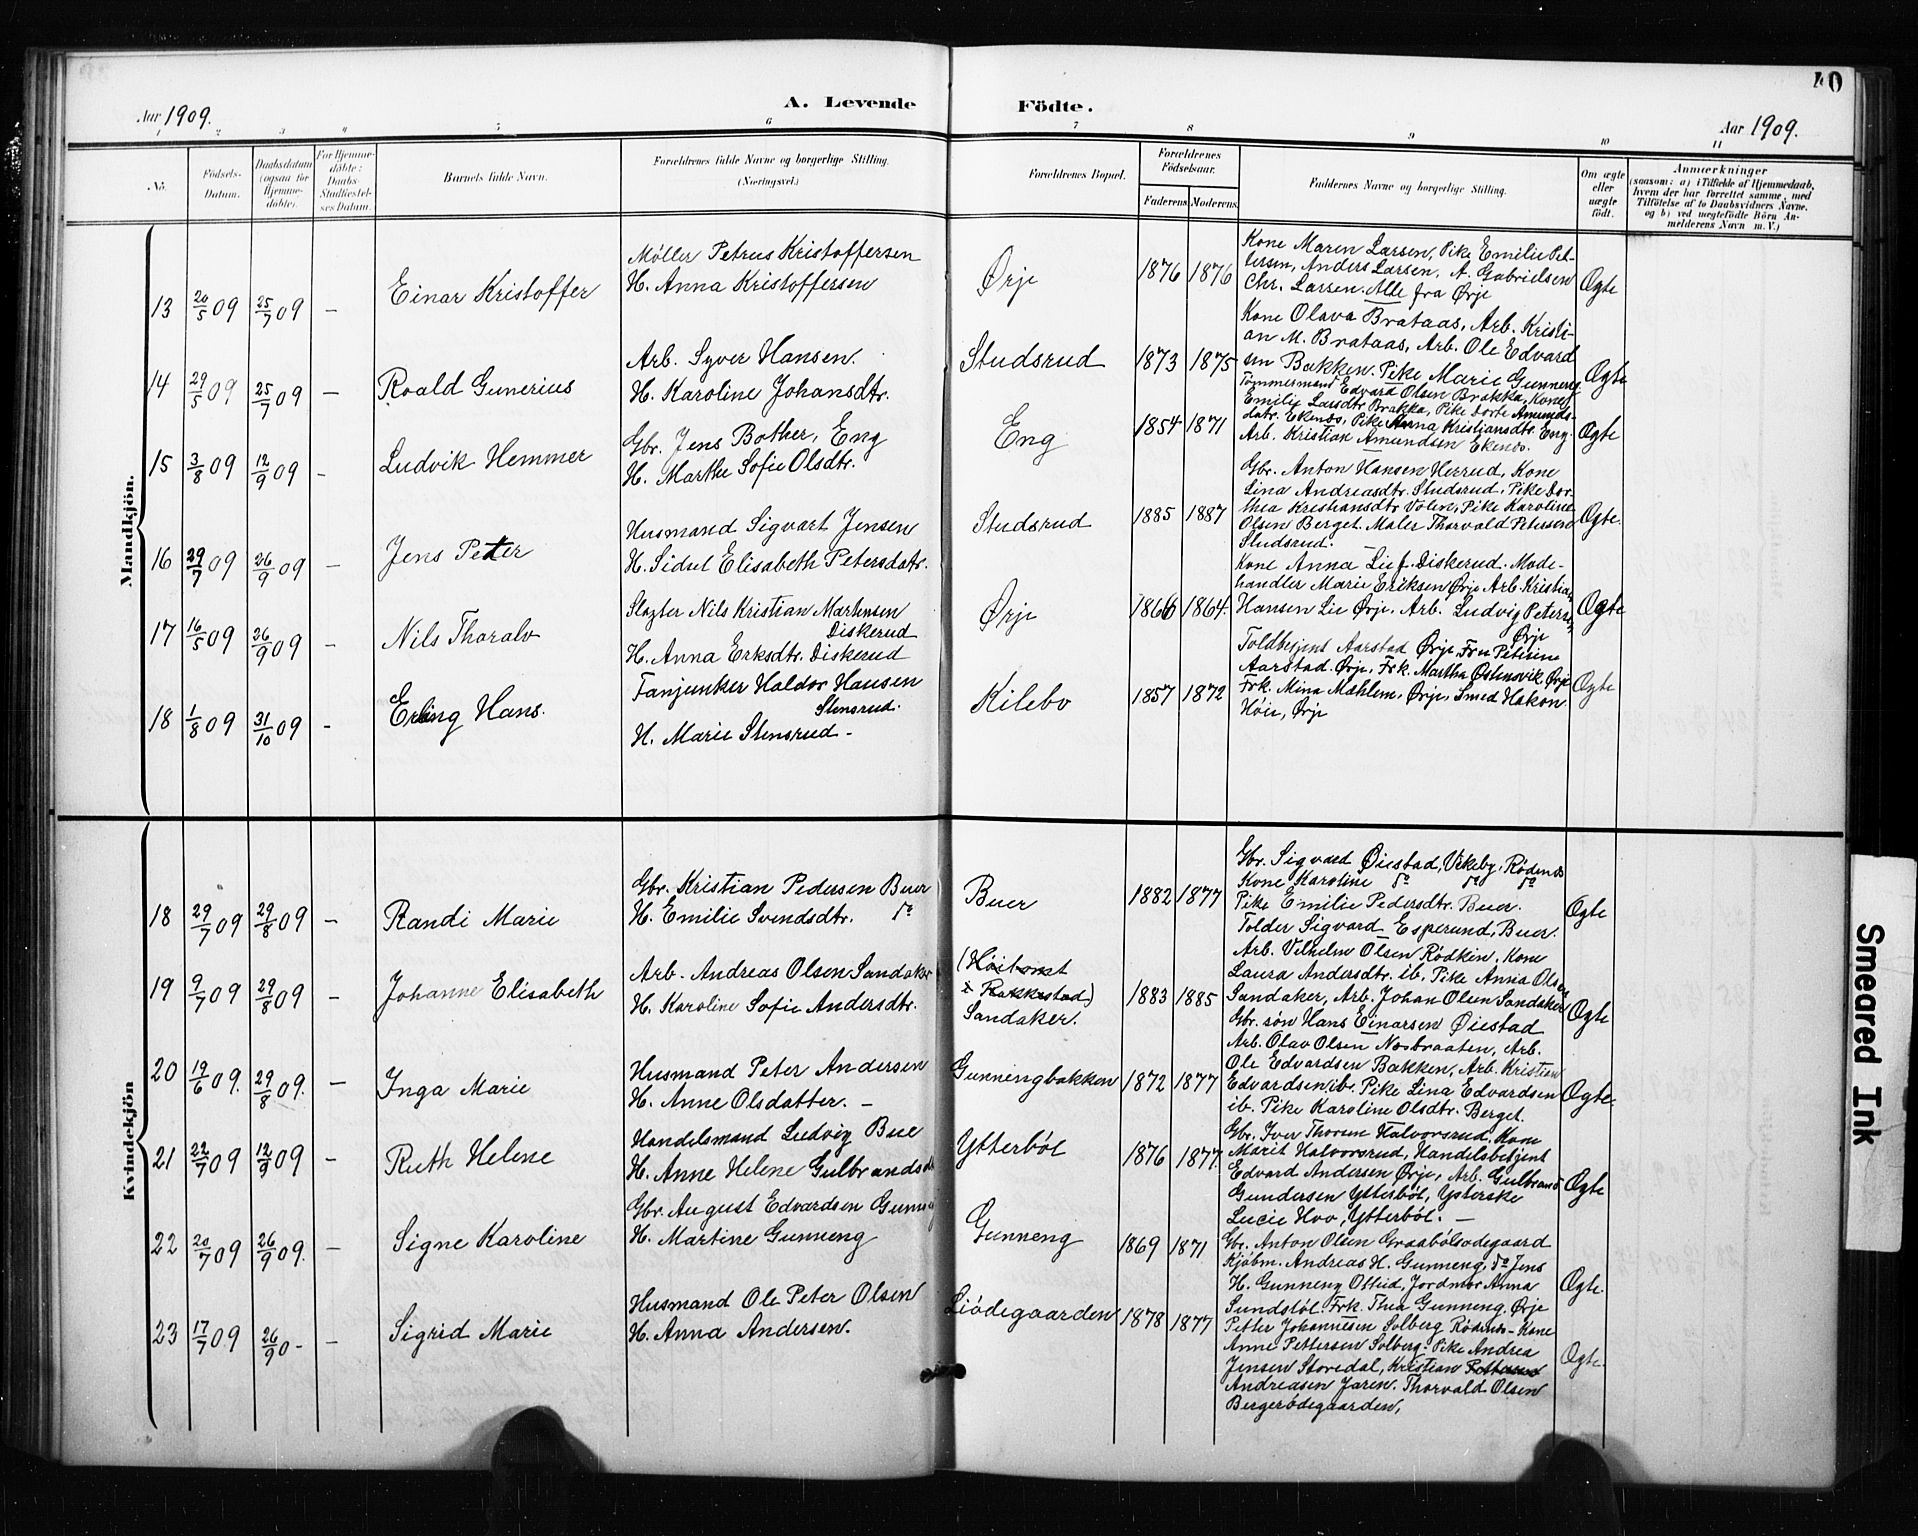 Aar 1909.
A. Levende Födte.
Aar 1909.
40
1 2 3 4 5 6 7 8 9 10 11
No.
Födsels-
Datum.
Daabsdatum
(ogsaa for
Hjemme-
döbte).
For Hjemme-
döbte:
Daabs-
Stadfæstel-
ses Datum.
Barnets fulde Navn.
Forældrenes fulde Navne og borgerlige Stilling.
(Næringsvei.)
Forældrenes Bopæl.
Forældrenes
Födselsaar.
Faderens. Moderens.
Faddernes Navne og borgerlige Stilling.
Om ægte
eller
uægte
födt.
Anmærkninger
(saasom: a) i Tilfælde af Hjemmedaab,
hvem der har forrettet samme, med
Tilföielse af to Daabsvidners Navne,
og b) ved uægtefödte Börn An-
melderens Navn m. V.)
Mandkjön.
13 20/5 09 25/7 09 – Einar Kristoffer
Møller Petrus Kristoffersen
H. Anna Kristoffersen
Ørje 1876 1876
Kone Maren Larsen, Pike Emilie Pet-
tersen, Anders Larsen, A. Gabrielsen
Chr. Larsen. Alle fra Ørje
Ogte
14 29/5 09 25/7 09 – Roald Gunerius
Arb. Syver Hansen.
H. Karoline Johansdtr.
Studsrud 1873 1875
Kone Olava Brataas, Arb. Kristi-
an M. Brataas, Arb. Ole Edvard
sen Bakken. Pike Marie Gunneng
Ogte
15 3/8 09 12/9 09 – Ludvik Hemmer
Gbr. Jens Bother, Eng
H. Marthe Sofie Olsdtr.
Eng 1854 1871
Tømmermand Edvard Olsen Brakka, Kone
Emilie Larsdtr. Brakka, Pike Dorte Amunds-
datr. Ekenæs, Pike Anna Kristiansdtr. Eng.
Arb. Kristian Amundsen Ekenæs.
Ogte
16 29/7 09 26/9 09 – Jens Peter
Husmand Sigvart Jensen
H. Sidsel Elisabeth Petersdatr.
Studsrud 1885 1887
Gbr. Anton Hansen Herrud, Kone
Lina Andreasdtr. Studsrud, Pike Dor-
thea Kristiansdtr Volen, Pike Karoline
Olsen Berget. Maler Thorvald Petersen
Studsrud.
Ogte.
17 16/5 09 26/9 09 – Nils Thoralv
Slagter Nils Kristian Martinsen
Diskerud
H. Anna Eriksdtr. Diskerud
Ørje 1866 1864.
Kone Anna Lie f. Diskerud. Mode-
handler Marie Eriksen Ørje. Arb. Kristian
Hansen Lie Ørje. Arb. Ludvig Petersen,
Ørje
Ogte
18 1/8 09 31/10 09 – Erling Hans.
Fanjunker Haldor Hansen
Stensrud.
H. Marie Stensrud –
Kilebo 1857 1872
Toldbetjent Aarstad Ørje, Fru Petrine
Aarstad. Ørje, Frk. Martha Østensvik, Ørje
Frk. Mina Mæhlem, Ørje, Smed Hakon
Høie, Ørje
Ogte
Kvindekjön
18 29/7 09 29/8 09 – Randi Marie
Gbr. Kristian Pedersen Buer
H. Emilie Svendsdtr. do
Buer 1882 1877
Gbr. Sigvard Øiestad, Vekeby, Rødenes
Kone Karoline do do do
Pike Emilie Pedersdtr. Buer.
Tolder Sigvard Esperund, Buer.
Ogte
19 9/7 09 29/8 09 – Johanne Elisabeth
Arb. Andreas Olsen Sandaker
H. Karoline Sofie Andersdtr.
(Høitomt
i Rakkestad)
Sandaker.
1883 1885
Arb. Vilhelm Olsen Rødkin, Kone
Laura Andersdtr. ib., Pike Anna Olsen
Sandaker, Arb. Johan Olsen Sandaker
Gbr. søn Hans Einarsen Øiestad
Ogte
20 19/6 09. 29/8 09. – Inga Marie
Husmand Peter Andersen
H. Anne Olsdatter. –
Gunnengbakken 1872 1877
Arb. Olav Olsen Næsbraaten, Arb.
Ole Edvardsen Bakken, Arb. Kristian
Edvardsen ib. Pike Lina Edvardsen
ib. Pike Karoline Olsdtr. Berget.
Ogte.
21 22/7 09 12/9 09 – Ruth Helene
Handelsmand Ludvig Bue
H. Anne Helene Gulbrandsd
Ytterbøl 1876 1877.
Gbr. Iver Thoresen Halvorsrud, Kone
Marit Halvorsrud, Handelsbetjent
Edvard Andersen Ørje, Arb. Gulbrand
Gundersen Ytterbøl, Ysterske
Lucie Hvo, Ytterbøl. –
Ogte
22 20/7 09 26/9 09. – Signe Karoline
Gbr. August Edvardsen Gunneng
H. Martine Gunneng
Gunneng 1869 1871
Gbr. Anton Olsen Graabølsødegaard
Kjøbm. Andreas H. Gunneng, do Jens
H. Gunneng Otteid, Jordmor Anna
Sundsbøl. Frk. Thea Gunneng, Ørje
Ogte.
23 17/7 09. 26/9 0– – Sigrid Marie
Husmand Ole Peter Olsen
H. Anna Andersen.
Liødegaarden 1878 1877
Petter Johannesen Solberg Rødenes – Kone
Anne Pettersen Solberg. Pike Andrea
Jensen Storedal, Kristian Pettersen
Andreasen Jaren. Thorvald Olsen
Bergerødegaarden,
Ogte.
Smeared Ink